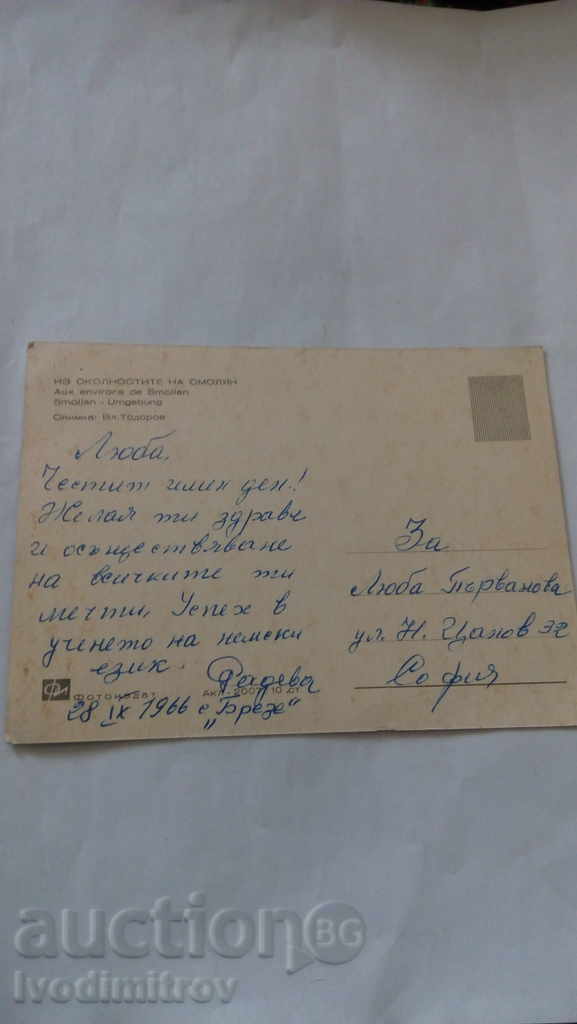 ИЗ ОКОЛНОСТИТЕ НА СМОЛЯН
Aux environs de Smolian
Smoljan - Umgebung
Снимка: Вл. Тодоров
Люба,
Честит имен ден!
Желая ти здраве
и осъществяване
на всичките ти
мечти. Успех в
ученето на немски
език.
Радеви
28 IX 1966 с. "Брезе"
ФОТОИЗДАТ
10 ст.
За
Люба Първанова
ул. Н. Цанов 32
София
auctionBG
Ivodimitrov